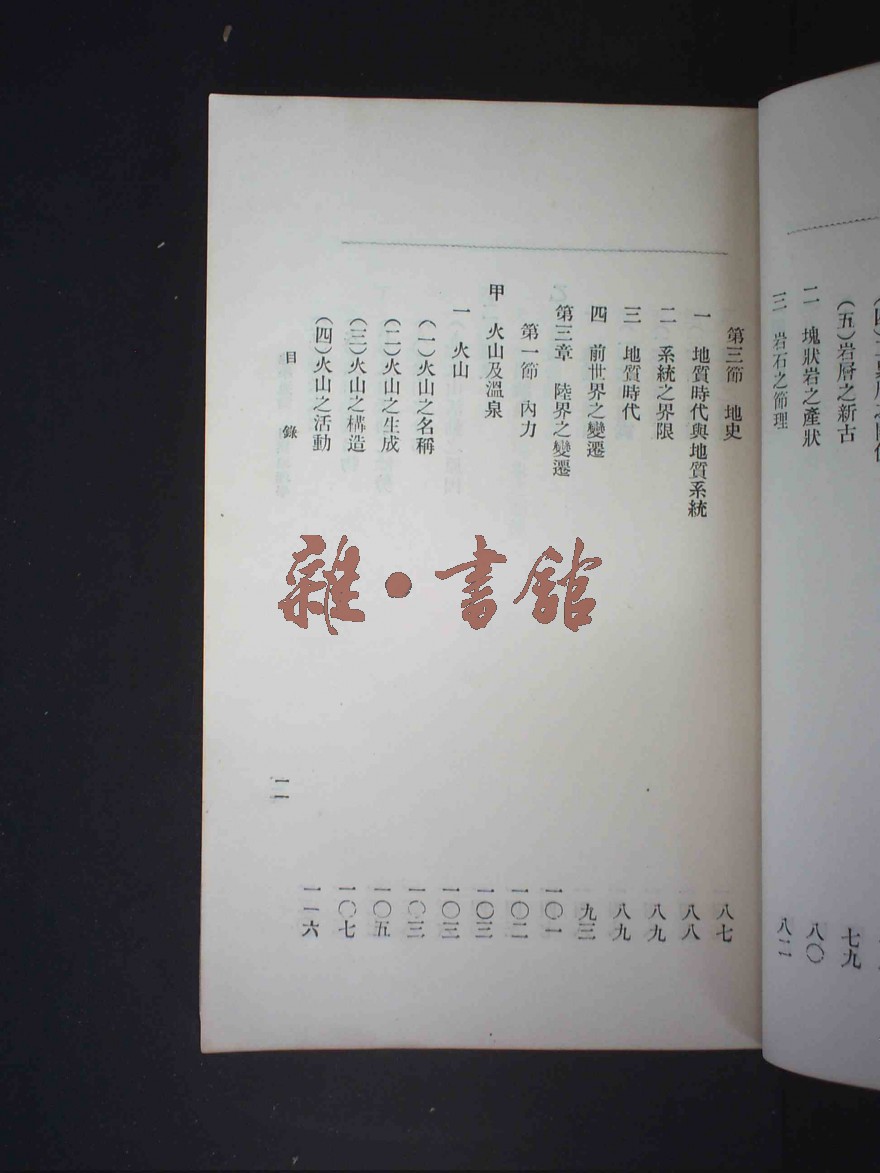 (五)岩層之新古 七九
二 塊狀岩之產狀 八〇
三 岩石之節理 八二
第三節 地史 八七
一 地質時代與地質系統 八八
二 系統之界限 八九
三 地質時代 八九
四 前世界之變遷 九三
第三章 陸界之變遷 一〇一
第一節 內力 一〇二
甲 火山及溫泉 一〇三
一 火山 一〇三
(一)火山之名稱 一〇三
(二)火山之生成 一〇五
(三)火山之構造 一〇七
(四)火山之活動 一一六
目錄 一一
雜·書館